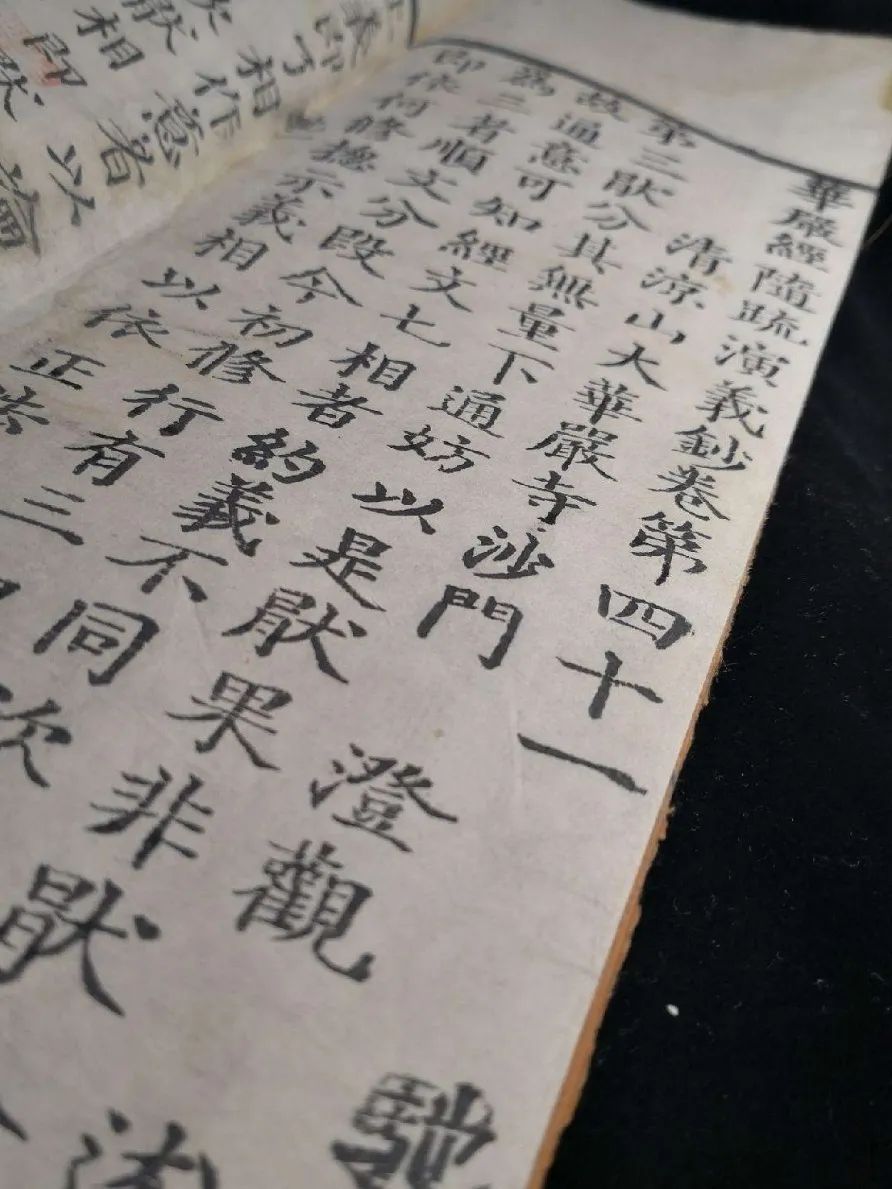 華嚴經隨疏演義鈔卷第四十一
清涼山大華嚴寺沙門 澄觀
第三厭分其無量下通妨以是厭果非厭
故通意可知經文七相者約義不同次
為二者順文分段今初修行有三
即依何修揔示義相以依正法
義即了相作意者以論
厭相即厭